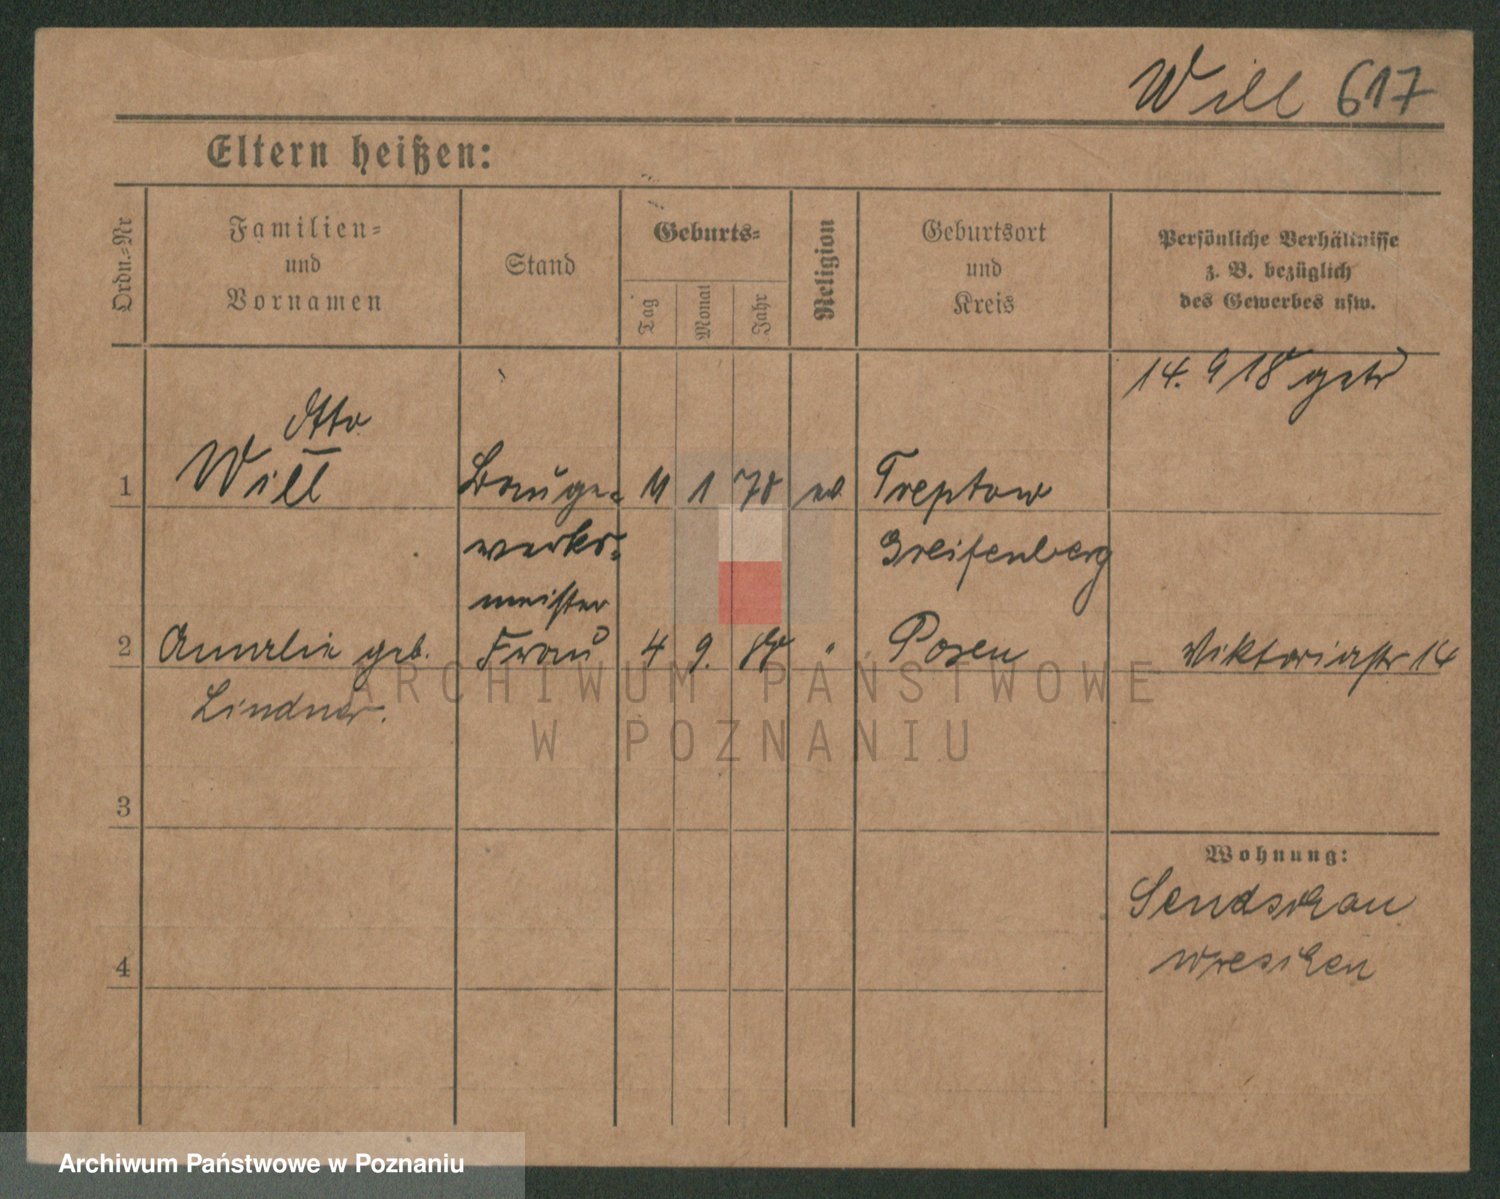 Will 617
Eltern heißen:
Ordn.-Nr
Familien-
und
Vornamen
Stand
Geburts-
Tag
Monat
Jahr
Religion
Geburtsort
und
Kreis
Persönliche Verhältnisse
z. B. bezüglich
des Gewerbes usw.
14. 9 18 getr
Otto
1 Will Bauge- 11 1 78 ev Treptow
werks- Greifenberg
meister
2 Amalie geb. Frau 4 9. " Posen Viktoriastr 14
Lindner.
ARCHIWUM PAŃSTWOWE
W POZNANIU
3
Wohnung:
Sendschau
Wreschen
4
Archiwum Państwowe w Poznaniu